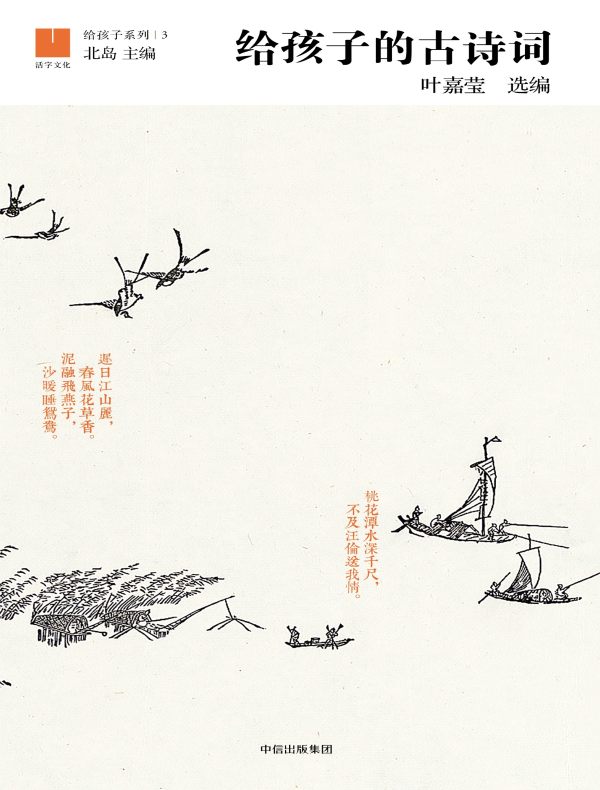 给孩子系列 | 3
北岛 主编
活字文化
给孩子的古诗词
叶嘉莹 选编
遲日江山麗，
春風花草香。
泥融飛燕子，
沙暖睡鴛鴦。
桃花潭水深千尺，
不及汪倫送我情。
中信出版集团